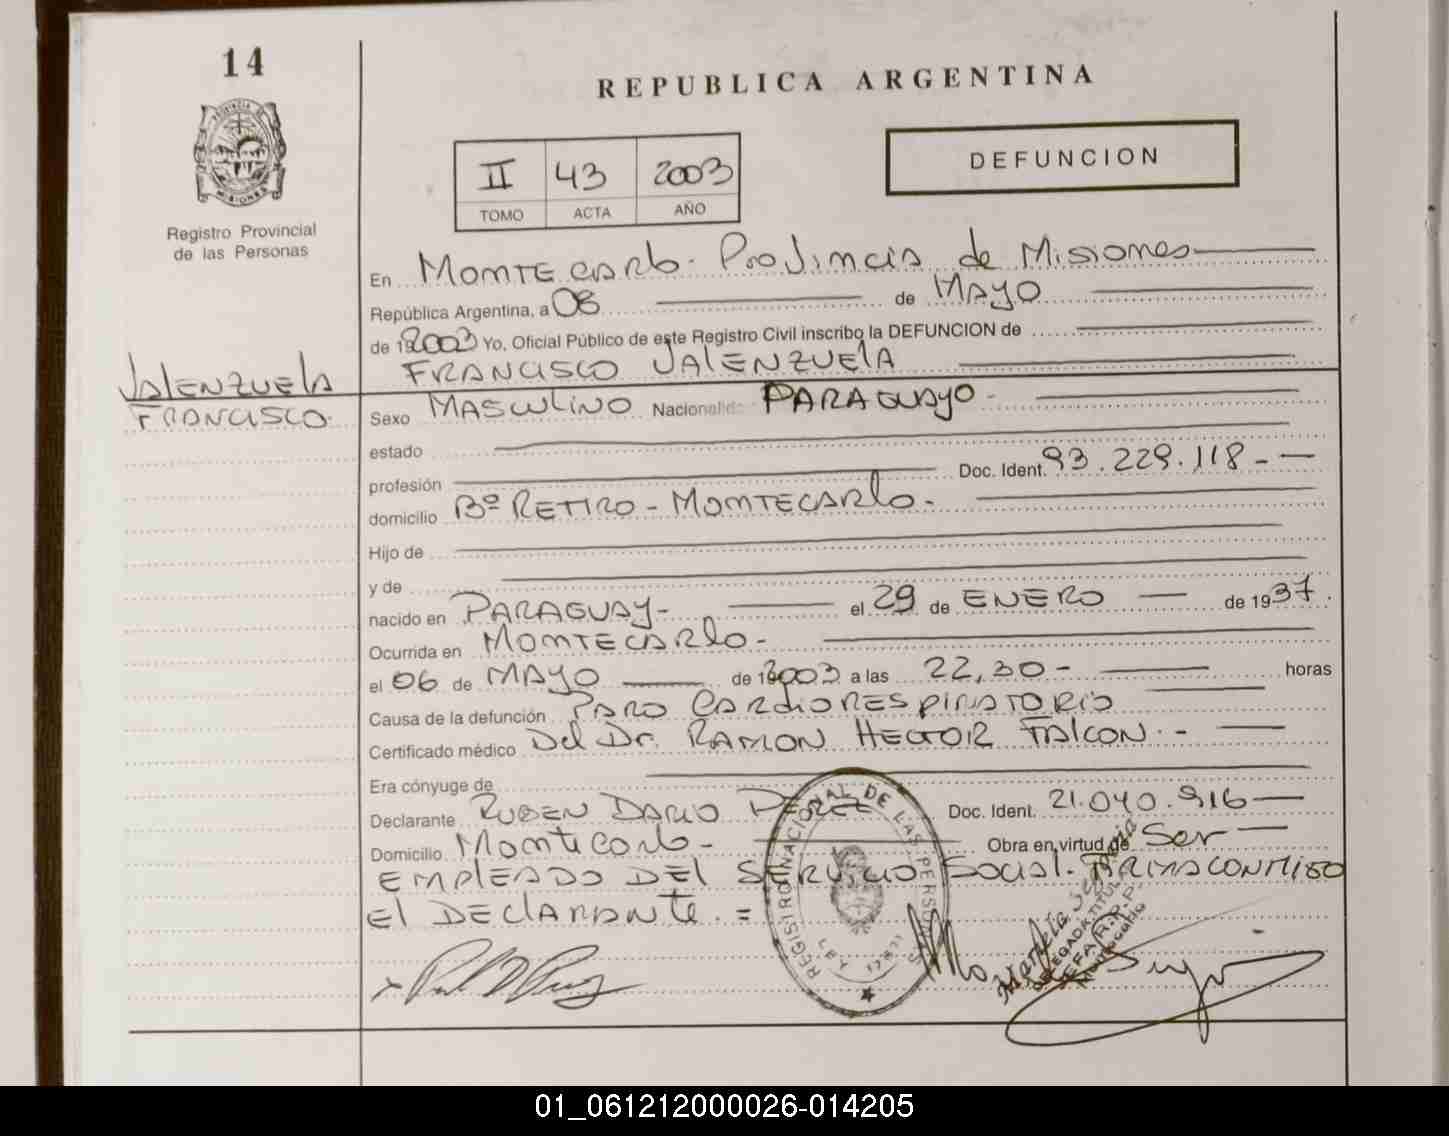 14
REPUBLICA ARGENTINA
PROVINCIA DE
MISIONES
Registro Provincial
de las Personas
II 43 2003
TOMO ACTA AÑO
DEFUNCION
En Montecarlo. Provincia de Misiones
República Argentina, a 08 de MAYO
de 2003 Yo, Oficial Público de este Registro Civil inscribo la DEFUNCION de
FRANCISCO VALENZUELA
VALENZUELA
FRANCISCO.
Sexo MASCULINO Nacionalid PARAGUAYO -
estado
profesión Doc. Ident. 93.229.118 - -
domicilio Bº RETIRO - MONTECARLO -
Hijo de
y de
nacido en PARAGUAY - el 29 de ENERO - de 1937.
Ocurrida en MONTECARLO -
el 06 de MAYO de 2003 a las 22,30 - horas
Causa de la defunción PARO CARDIORESPIRATORIO
Certificado médico Del Dr. RAMON HECTOR FALCON. -
Era cónyuge de
Declarante RUBEN DARIO PEREZ Doc. Ident. 21.040.916
Domicilio Montecarlo - Obra en virtud de Ser
EMPLEADO DEL SERVICIO SOCIAL. FIRMA CONMIGO
EL DECLARANTE. =
REGISTRO NACIONAL DE LAS PERSONAS
LEY 17671
DELEGADA TITULAR
JEFA R.P.P.
Montecarlo
01_061212000026-014205